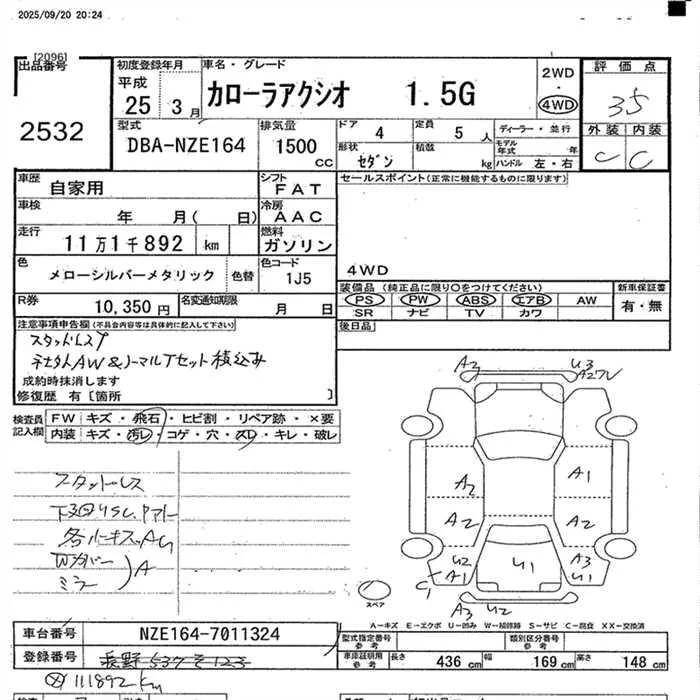 2025/09/20 20:24
[2096]
出品番号
2532
初度登録年月
平成
25 3 月
車名・グレード
カローラアクシオ 1.5G
2WD
・
4WD
評価点
35
外装 内装
C C
型式
DBA-NZE164
排気量
1500 CC
ドア 4
定員 5 人
ディーラー・並行
形状
セダン
積数 kg
モデル年式 年
ハンドル 左・右
車歴
自家用
シフト
FAT
セールスポイント(正常に機能するものに限ります)
車検
年 月( 日)
冷房
AAC
走行
11万1千892 km
燃料
ガソリン
4WD
色
メローシルバーメタリック
色替
色コード
1J5
装備品(純正品に限り○をつけてください)
新車保証書
PS PW ABS エアB AW
SR ナビ TV カワ
有・無
R券
10,350円
名変通知期限
月 日
後日品
注意事項申告欄(不具合内容等は具体的に記入して下さい)
スタッドレス
AW&ノーマルTセット積込み
成約時抹消します
修復歴 有[箇所 ]
検査員記入欄
FW キズ・飛石・ヒビ割・リペア跡・×要
内装 キズ・汚レ・コゲ・穴・スレ・キレ・破レ
スタットレス
Wカバー
ミラー
A
A2
U3
A2
A1
A2
A2
U2
A1
U1
A3
U1
C1
A3 U2
スペア
A-キズ E-エクボ U-凹み W-補修跡 S-サビ C-腐食 XX-交換済
車台番号
NZE164-7011324
登録番号
型式指定番号
参考
類別区分番号
参考
車庫証明用
参考
長さ 436 cm 幅 169 cm 高さ 148 cm
111892 km